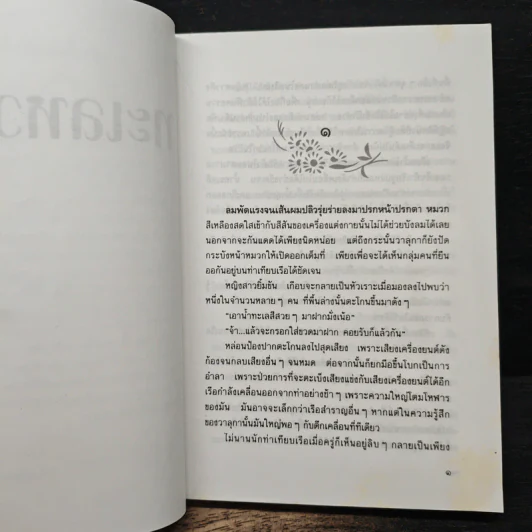 ๑
ลมพัดแรงจนเส้นผมปลิวรุ่ยร่ายลงมาปรกหน้าปรกตา หมวก
สีเหลืองสดใสเข้ากับสีสันของเครื่องแต่งกายนั้นไม่ได้ช่วยบังลมได้เลย
นอกจากจะกันแดดได้เพียงนิดหน่อย แต่ถึงกระนั้นวาลุกาก็ยังปัด
กระบังหน้าหมวกให้เปิดออกเต็มที่ เพียงเพื่อจะได้เห็นกลุ่มคนที่ยืน
ออกันอยู่บนท่าเทียบเรือได้ชัดเจน
หญิงสาวยิ้มขัน เกือบจะกลายเป็นหัวเราะเมื่อมองลงไปพบว่า
หนึ่งในจำนวนหลาย ๆ คน ที่พื้นล่างนั้นตะโกนขึ้นมาดัง ๆ
"เอาน้ำทะเลสีสวย ๆ มาฝากมั่งเน้อ"
"จ้า...แล้วจะกรอกใส่ขวดมาฝาก คอยรับก็แล้วกัน"
หล่อนป้องปากตะโกนลงไปสุดเสียง เพราะเสียงเครื่องยนต์ดัง
ก้องจนกลบเสียงอื่น ๆ จนหมด ต่อจากนั้นก็ยกมือขึ้นโบกเป็นการ
อำลา เพราะป่วยการที่จะตะเบ็งเสียงแข่งกับเสียงเครื่องยนต์ได้อีก
เรือกำลังเคลื่อนออกจากท่าอย่างช้า ๆ เพราะความใหญ่โตมโหฬาร
ของมัน มันอาจจะเล็กกว่าเรือสำราญอื่น ๆ หากแต่ในความรู้สึก
ของวาลุกานั้นมันใหญ่พอ ๆ กับตึกเคลื่อนที่ทีเดียว
ไม่นานนักท่าเทียบเรือเมื่อครู่ก็เห็นอยู่ลิบ ๆ กลายเป็นเพียง
๑